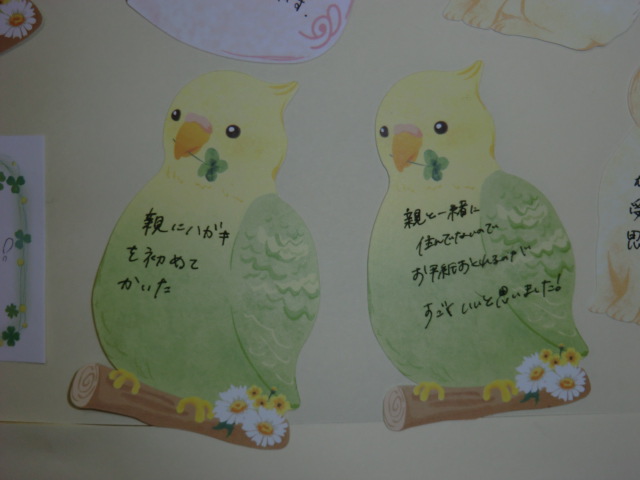 親にハガキ
を初めて
かいた
親と一緒に
住んでないので
お手紙おくれるのが
すごくいいと思いました!